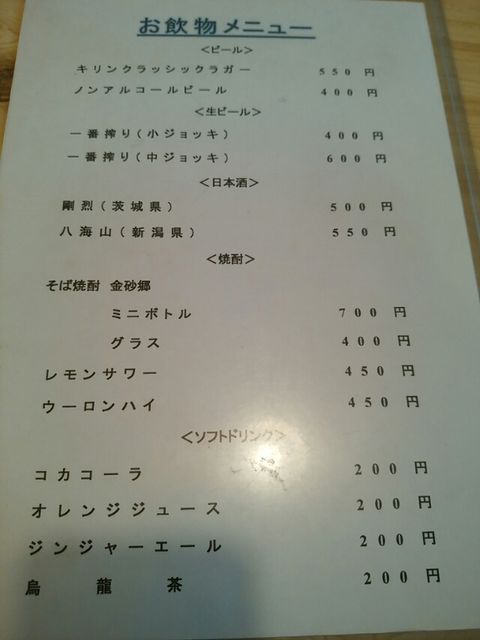 お飲物メニュー
＜ビール＞
キリンクラッシックラガー 550 円
ノンアルコールビール 400 円
＜生ビール＞
一番搾り(小ジョッキ) 400 円
一番搾り(中ジョッキ) 600 円
＜日本酒＞
剛烈(茨城県) 500 円
八海山(新潟県) 550 円
＜焼酎＞
そば焼酎 金砂郷
ミニボトル 700 円
グラス 400 円
レモンサワー 450 円
ウーロンハイ 450 円
＜ソフトドリンク＞
コカコーラ 200 円
オレンジジュース 200 円
ジンジャーエール 200 円
烏龍茶 200 円